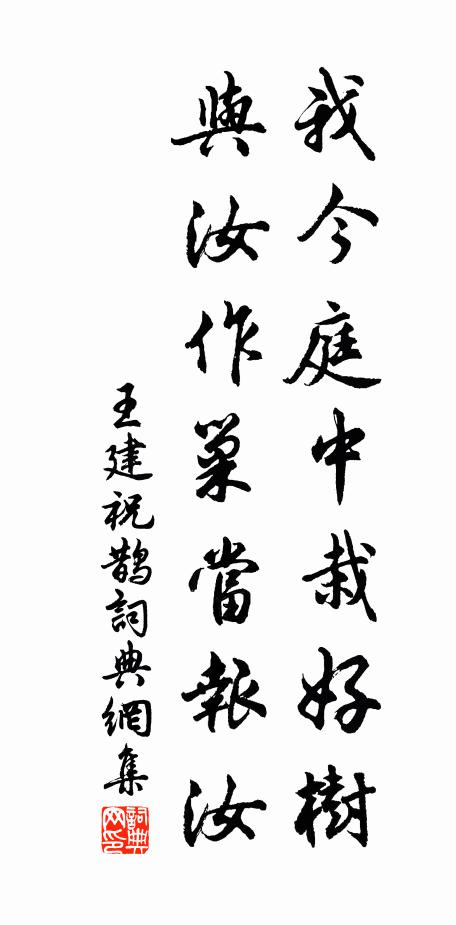 我今庭中栽好樹
與汝作巢當報汝
王建祝鵲詞典網集
詞典網印